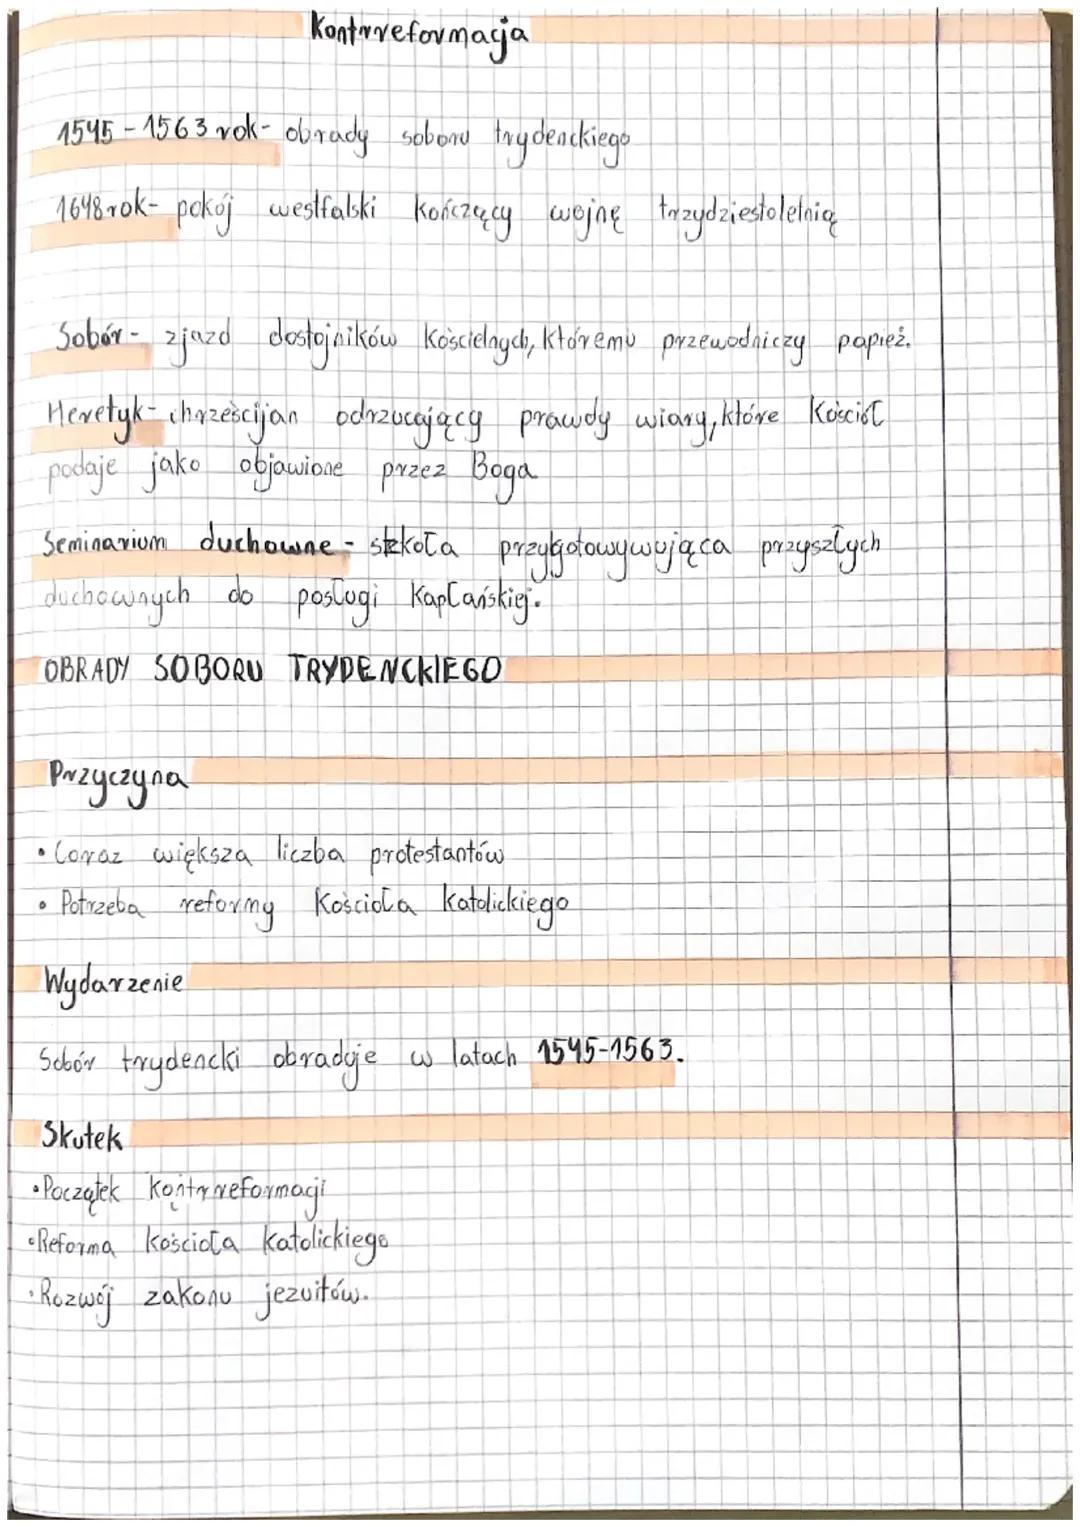 Kontrreformacja
1545 - 1563 rok - obrady soboru trydenckiego
1648 rok - pokój westfalski kończący wojnę trzydziestoletnią
Sobór - zjazd dostojników kościelnych, któremu przewodniczy papież.
Heretyk - chrześcijan odrzucający prawdy wiary, które Kościół
podaje jako objawione przez Boga
Seminarium duchowne - szkoła przygotowywująca przyszłych
duchownych do posługi kapłańskiej.
OBRADY SOBORU TRYDENCKIEGO
Przyczyna
• Coraz większa liczba protestantów
• Potrzeba reformy Kościoła katolickiego
Wydarzenie
Sobór trydencki obraduje w latach 1545-1563.
Skutek
• Początek kontrreformacji
• Reforma kościoła katolickiego
• Rozwój zakonu jezuitów.